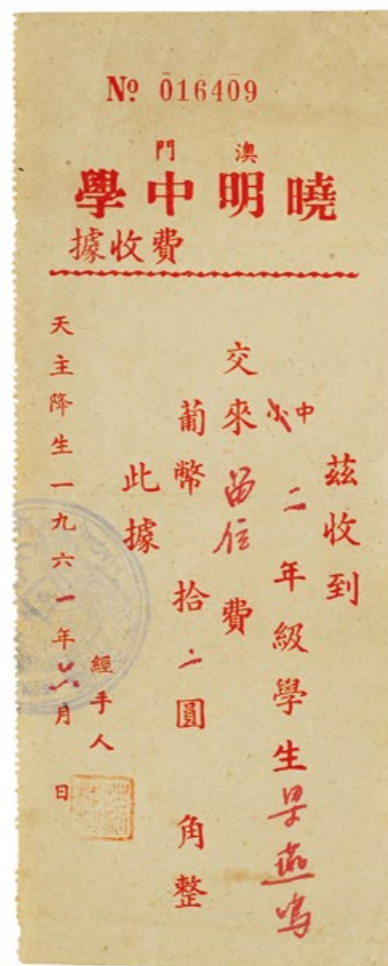 № 016409
澳門
曉明中學
費收據
茲收到
中 二年級學生 燕鳴
交來 留位 費
葡幣 拾 圓 角整
此據
經手人
天主降生一九六一年 月 日